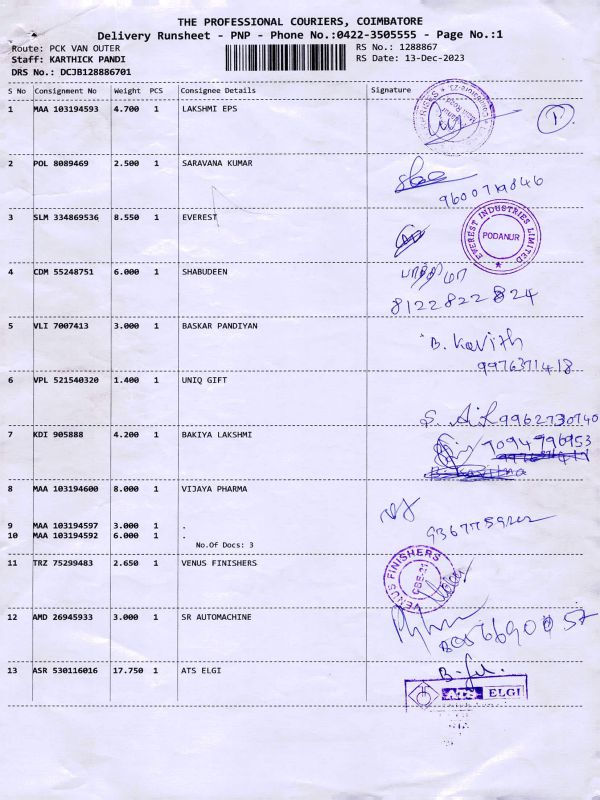 THE PROFESSIONAL COURIERS, COIMBATORE
Delivery Runsheet - PNP - Phone No.:0422-3505555 - Page No.:1
Route: PCK VAN OUTER RS No.: 1288867
Staff: KARTHICK PANDI RS Date: 13-Dec-2023
DRS No.: DCJB128886701
S No Consignment No Weight PCS Consignee Details Signature
1 MAA 103194593 4.700 1 LAKSHMI EPS
2 POL 8089469 2.500 1 SARAVANA KUMAR
3 SLM 334869536 8.550 1 EVEREST
EVEREST INDUSTRIES LIMITED
PODANUR
4 CDM 55248751 6.000 1 SHABUDEEN
பாத்திமா
8122822824
5 VLI 7007413 3.000 1 BASKAR PANDIYAN
B. Kavith
9976371418
6 VPL 521540320 1.400 1 UNIQ GIFT
9962730740
7 KDI 905888 4.200 1 BAKIYA LAKSHMI
7094796953
8 MAA 103194600 8.000 1 VIJAYA PHARMA
9 MAA 103194597 3.000 1 .
10 MAA 103194592 6.000 1 .
No.Of Docs: 3
11 TRZ 75299483 2.650 1 VENUS FINISHERS
VENUS FINISHERS
CBE-21
12 AMD 26945933 3.000 1 SR AUTOMACHINE
13 ASR 530116016 17.750 1 ATS ELGI
ATS ELGI